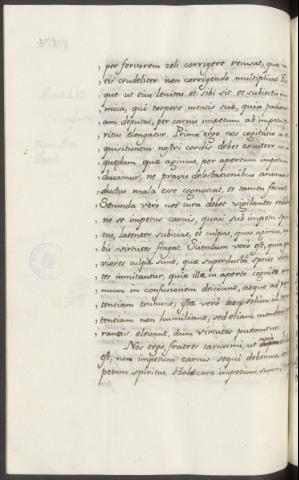 , per fervorem zeli corrigere recusat, quia in
, eis crudeliter non corrigendo multiplicat. Fit
, que ut eius lenitas et sibi sit et subiectis ini
, mica, qui torpore mentis suæ, quia patien
, am deputat, per carnis impetum ab impetu spi
, ritu elongatur. Prima ergo nos cogitatio in
, quisitionem nostri cordis debet excutere, ne
, quædam quæ agimus, per apertum impetum
, ducamur, ne pravis delectationibus animus
, ductus mala esse cognoscat, et tamen faciat.
, Secunda vero nos cura debet vigilantes reddere
, ne se impetus carnis, quasi sub impetu spiri
, tus, latenter subiiciat, et culpas, quas agimus, no
, bis virtutes fingat. Sciendum vero est, quia gra
, viores culpæ sunt, quæ superducta specie virtu
, tes imitantur, quia illæ in aperto cognitæ ani
, mum in confusionem deiiciunt, atque ad pœni
, tentiam trahunt; istæ verò non solum in pœni
, tentiam non humiliant, sed etiam mentem ope
, rantis elevant, dum virtutes putantur.
Nos ergo, fratres carissimi, ut
est, non impetum carnis sequi debemus, sed im
petum spiritus. Habet caro impetum,